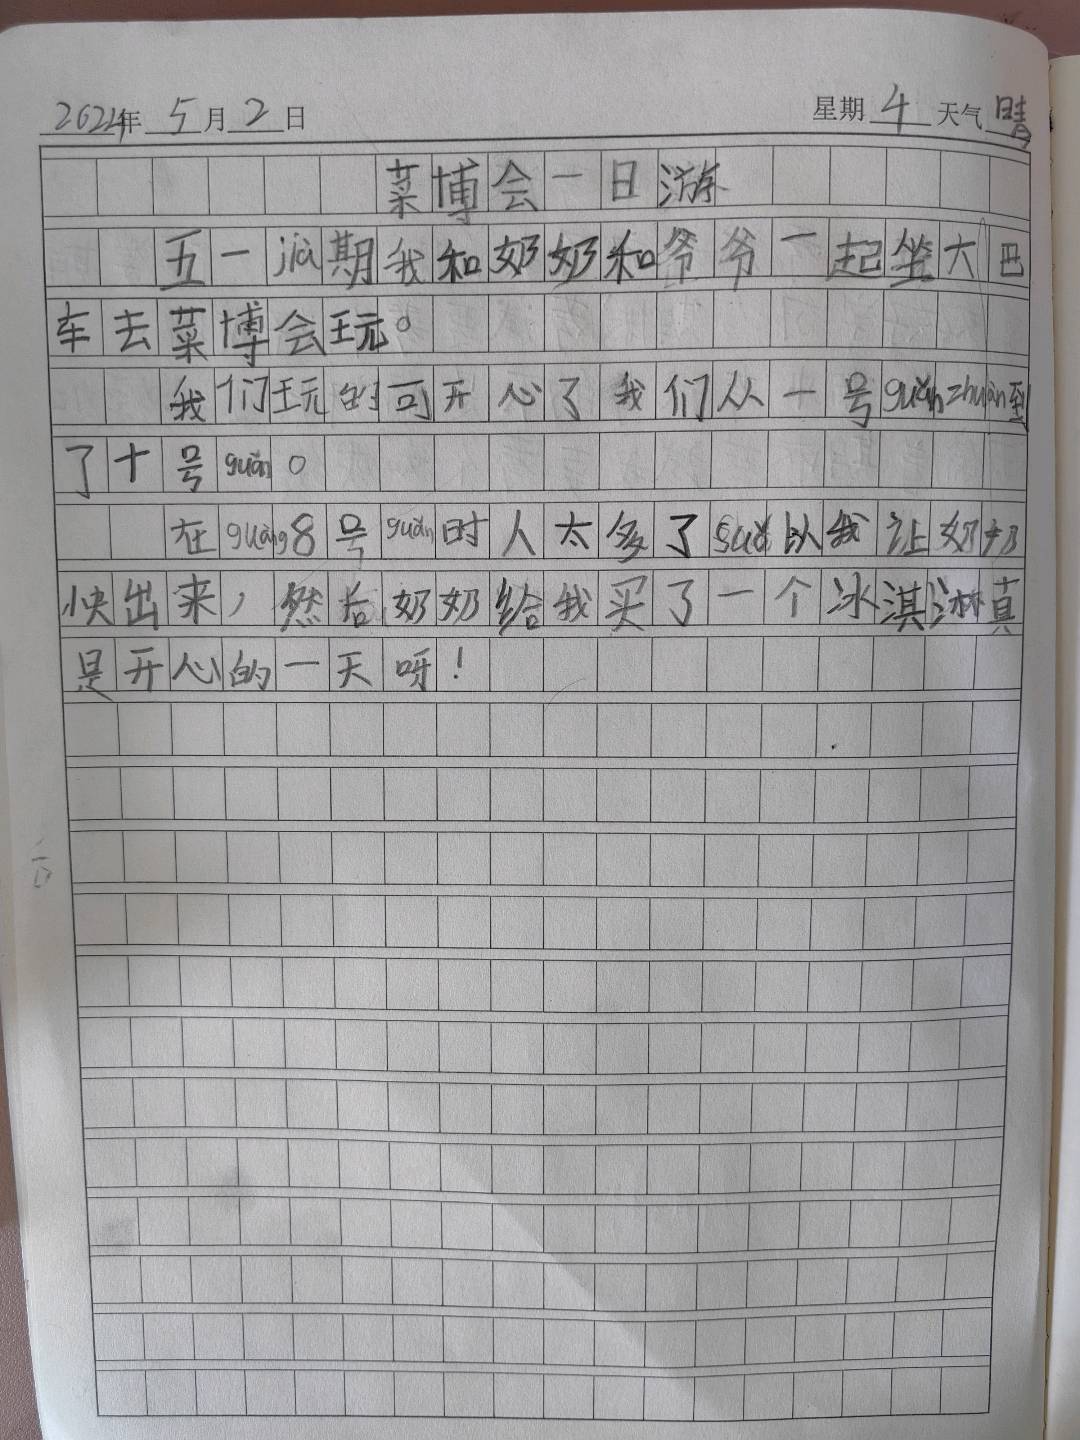 2024年 5月2日 星期4天气晴
菜博会一日游
五一jià期我和奶奶和爷爷一起坐大巴
车去菜博会玩。
我们玩的可开心了我们从一号guǎnzhuàn到
了十号guǎn。
在guàng8号guǎn时人太多了suǒ以我让奶奶
快出来，然后奶奶给我买了一个冰淇淋真
是开心的一天呀！